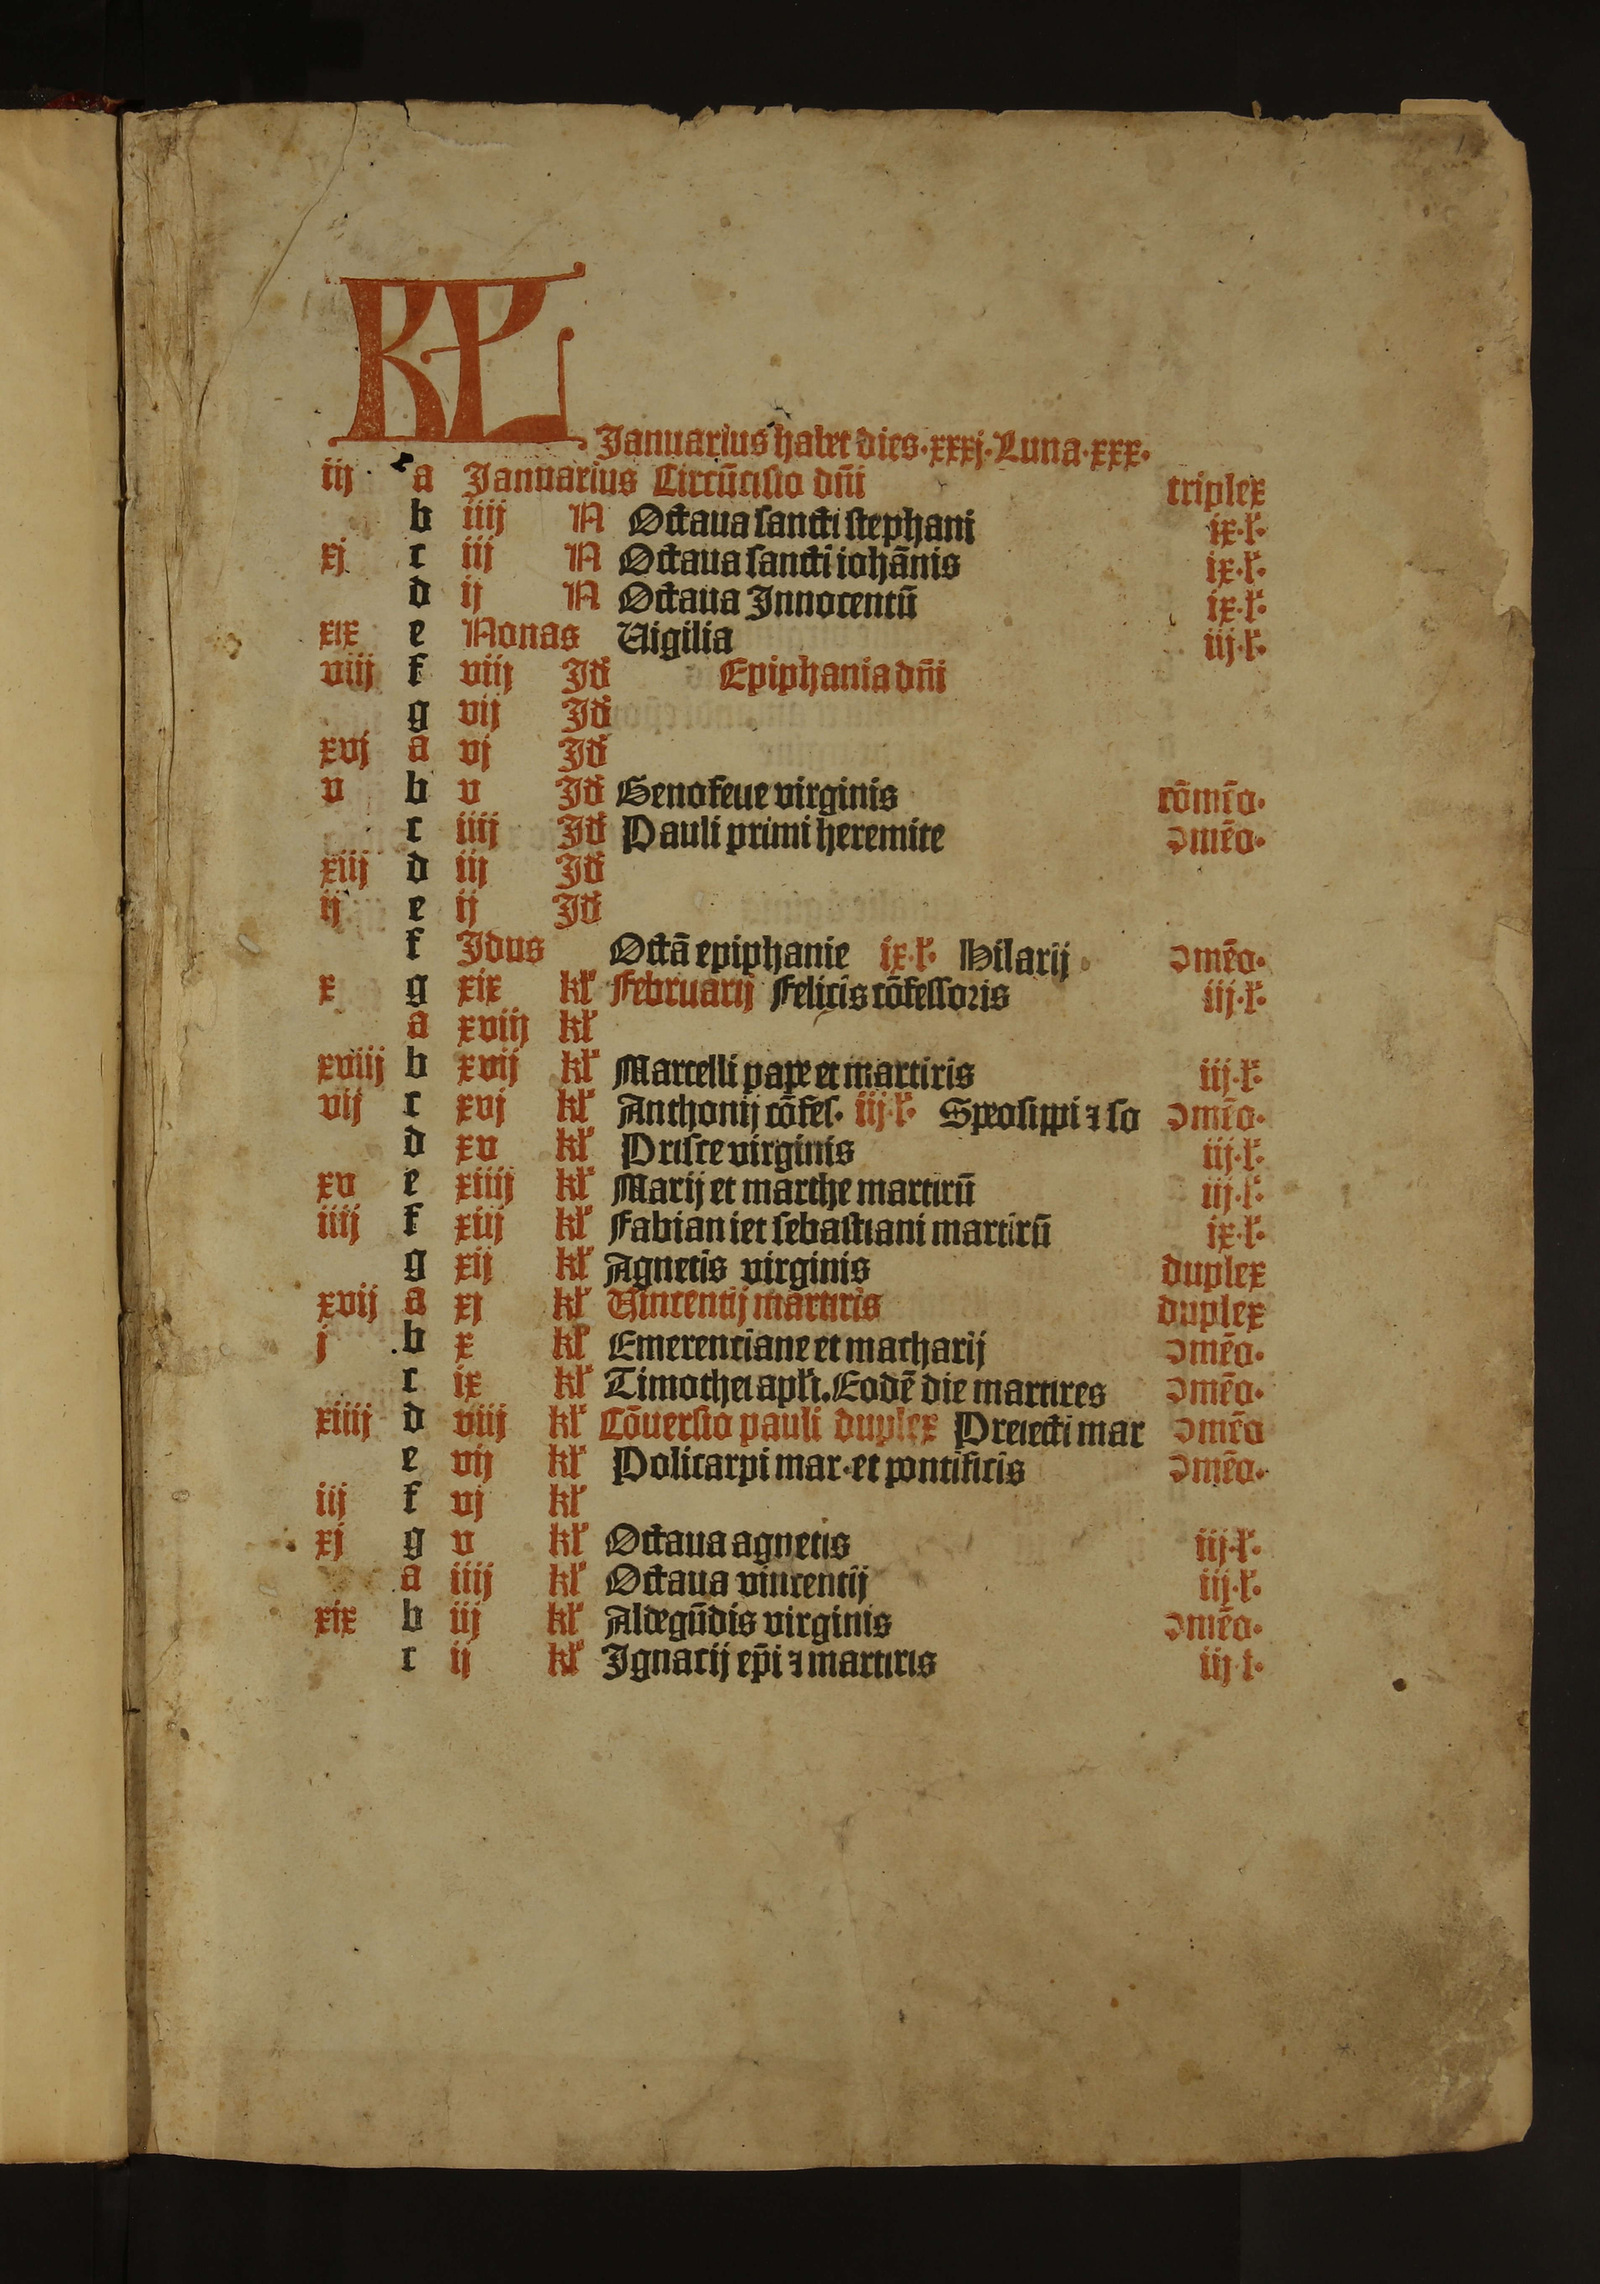 KL Januarius habet dies·xxxj·Luna·xxx·
iij a Januarius Circũcisio dñi triplex
b iiij N Octaua sancti stephani ix·l̛·
xj c iij N Octaua sancti iohãnis ix·l̛·
d ij N Octaua Innocentũ ix·l̛·
xix e Nonas Uigilia iij·l̛·
viij f viij Id̛ Epiphania dñi
g vij Id̛
xvj a vj Id̛
v b v Id̛ Genofeue virginis cõmẽo·
c iiij Id̛ Pauli primi heremite ↄmẽo·
xiij d iij Id̛
ij e ij Id̛
f Idus Octã epiphanie ix·l̛· Hilarij ↄmẽo·
x g xix kl̛ Februarij Felicis cõfessoris iij·l̛·
a xviij kl̛
xviij b xvij kl̛ Marcelli pape et martiris iij·l̛·
vij c xvj kl̛ Anthonij cõfes· iij·l̛· Speosippi ⁊ so ↄmẽo·
d xv kl̛ Prisce virginis iij·l̛·
xv e xiiij kl̛ Marij et marthe martirũ iij·l̛·
iiij f xiij kl̛ Fabian iet sebastiani martirũ ix·l̛·
g xij kl̛ Agnetis virginis duplex
xvij a xj kl̛ Vincentij martiris duplex
j b x kl̛ Emerenciane et macharij ↄmẽo·
c ix kl̛ Timothei apl̛i.Eodẽ die martires ↄmẽo·
xiiij d viij kl̛ Cõuersio pauli duplex Preiecti mar ↄmẽo
e vij kl̛ Policarpi mar·et pontificis ↄmẽo·
iij f vj kl̛
xj g v kl̛ Octaua agnetis iij·l̛·
a iiij kl̛ Octaua vincentij iij·l̛·
xix b iij kl̛ Aldegũdis virginis ↄmẽo·
c ij kl̛ Ignacij ep̃i ⁊ martiris iij·l·